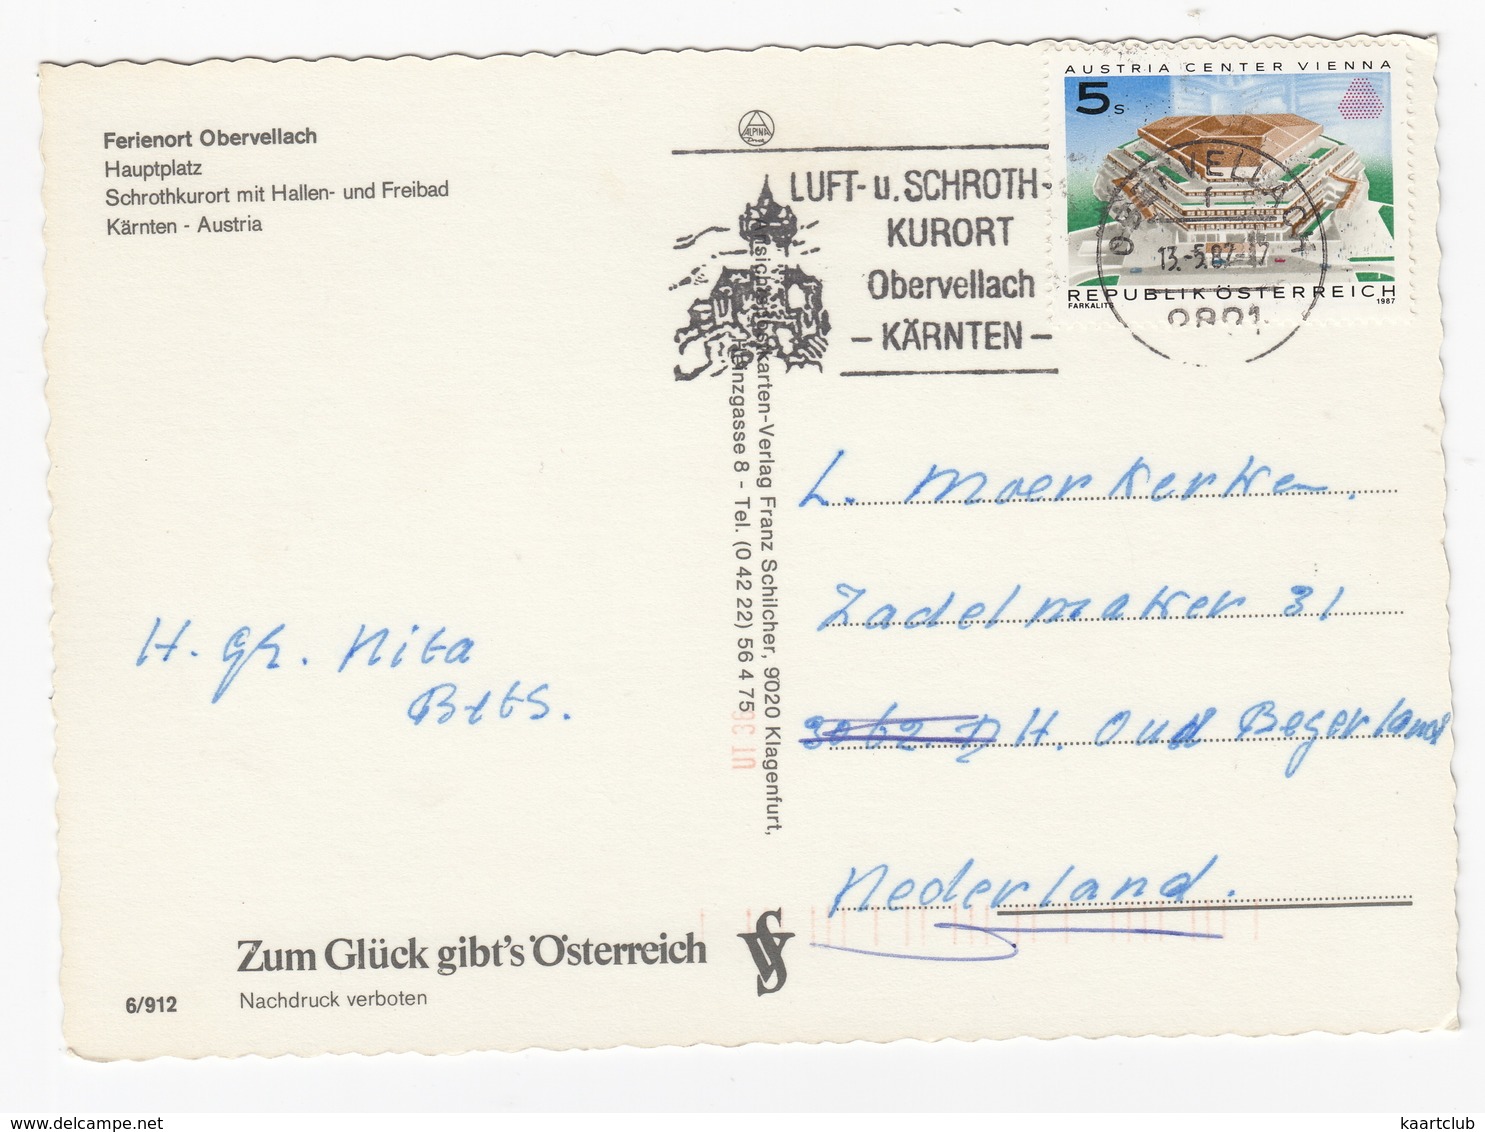 Ferienort Obervellach
Hauptplatz
Schrothkurort mit Hallen- und Freibad
Kärnten - Austria
ALPINA
LUFT- u. SCHROTH-
KURORT
Obervellach
- KÄRNTEN -
AUSTRIA CENTER VIENNA
5 s
REPUBLIK ÖSTERREICH
FARKALITS 1987
OBERVELLACH
13.-5.87-17
9821
Ansichtskarten-Verlag Franz Schilcher, 9020 Klagenfurt,
Heinzgasse 8 - Tel. (0 42 22) 56 4 75
L. Moerkerken.
Zadelmaker 31
H. Oud Begerland
Nederland.
H. Gr. Nita
Bets.
Zum Glück gibt's Österreich
6/912
Nachdruck verboten
www.delcampe.net
kaartclub